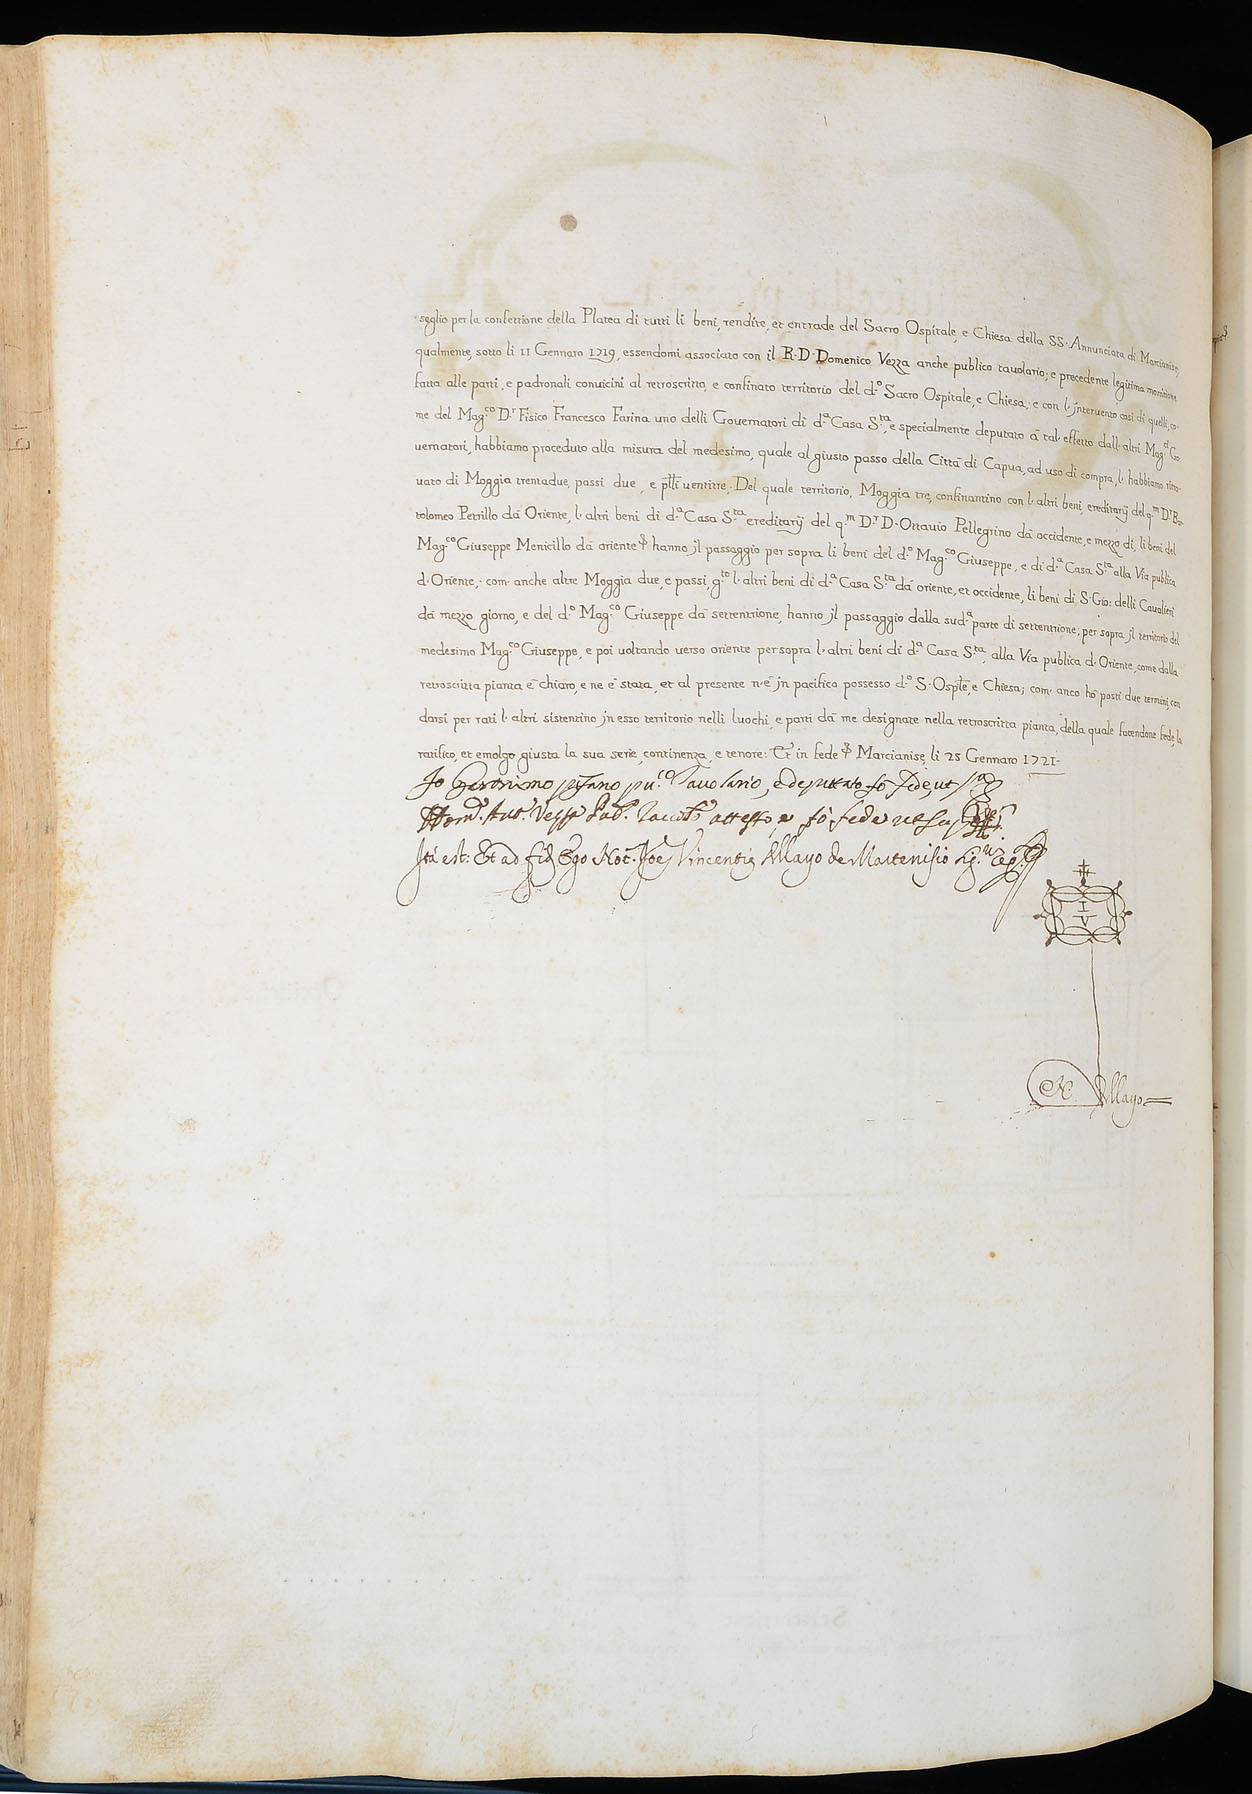 seglio per la confettione della Platea di tutti li beni, rendite, et entrade del Sacro Ospitale, e Chiesa della SS. Annunciata di Marcianise,
qualmente, sotto li 11 Gennaro 1719, essendomi associato con il R. D. Domenico Vezza anche publico tavolario; e precedente legitima monitione
fatta alle parti, e padronali convicini al retroscritto, e confinato territorio del d.º Sacro Ospitale, e Chiesa; e con l'intervento così di quelli, co-
me del Mag.co D.r Fisico Francesco Farina uno delli Governatori di d.ª Casa S.ta, e specialmente deputato à tal' effetto dall' altri Mag.ci Go-
vernatori, habbiamo proceduto alla misura del medesimo, quale al giusto passo della Città di Capua, ad uso di compra, l' habbiamo ritro-
vato di Moggia trentadue, passi due, e p̃lli ventitre. Del quale territorio, Moggia tre, confinantino con l' altri beni, ereditarij del q.m D.r Bar-
tolomeo Petrillo dà Oriente, l' altri beni di d.ª Casa S.ta ereditarij del q.m D.r D. Ottavio Pellegrino dà occidente, e mezzo dì, li beni del
Mag.co Giuseppe Menicillo dà oriente hanno jl passaggio per sopra li beni del d.º Mag.co Giuseppe, e di d.ª Casa S.ta alla Via publica
d' Oriente, com' anche altre Moggia due, e passi, g.to l' altri beni di d.ª Casa S.ta dà oriente, et occidente, li beni di S. Gio: delli Cavalieri
dà mezzo giorno, e del d.º Mag.co Giuseppe dà settentrione, hanno jl passaggio dalla sud.ª parte di settentrione, per sopra jl territorio del
medesimo Mag.co Giuseppe, e poi voltando verso oriente per sopra l' altri beni di d.ª Casa S.ta, alla Via publica d' Oriente, come dalla
retroscritta pianta è chiaro, e ne è stata, et al presente n' è jn pacifico possesso d.º S. Osp̃le, e Chiesa; com' anco hò posti due termini, con
darsi per rati l' altri sistentino jn esso territorio nelli luochi, e parti dà me designate nella retroscritta pianta, della quale facendone fede, la
ratifico, et emolgo giusta la sua serie, continenza, e tenore: Et in fede Marcianise, li 25 Gennaro 1721.
Jo Geronimo pisano pu.co Tavolario, e deputato fò fede, ut s.ª
Dom.º Ant.º Vezza Pub.º Tavol.º attesto, e fò fede ut sup.ª
Ita est: Et ad fid. Ego Not. Joẽs Vincentiq Mayo de Martenisio
I
V
N. Mayo